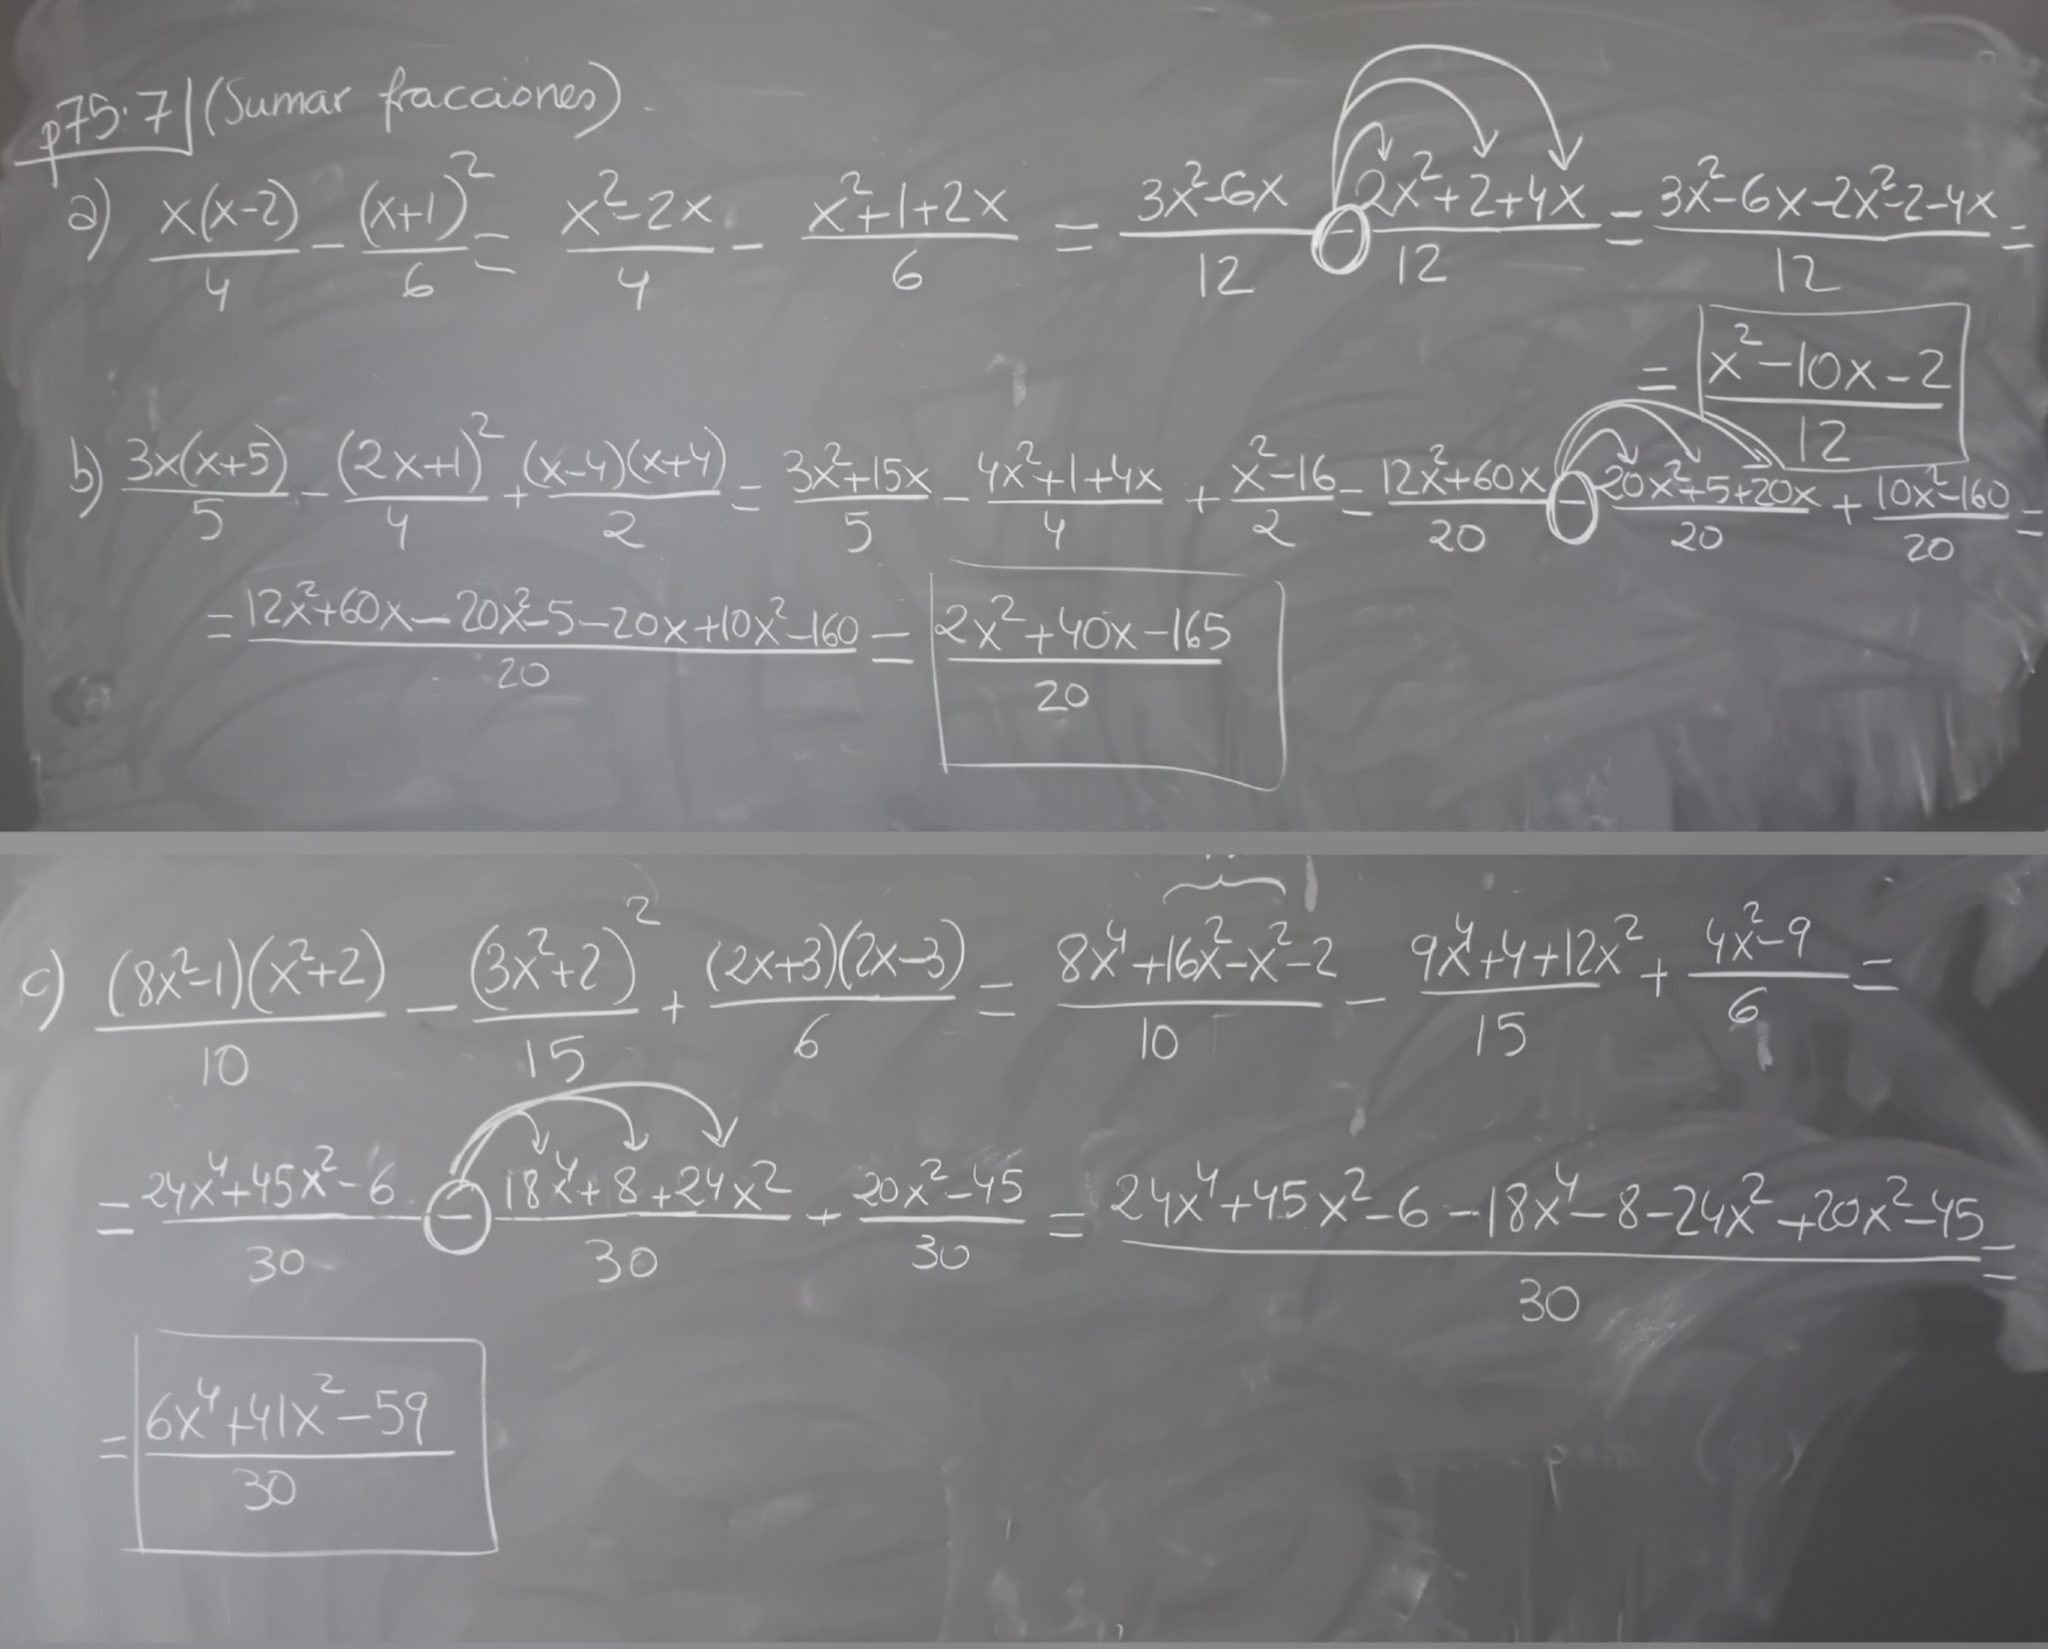 p75.7 (Sumar fracciones)
a) x(x-2)/4 - (x+1)²/6 = x²-2x/4 - x²+1+2x/6 = 3x²-6x/12 - 2x²+2+4x/12 = 3x²-6x-2x²-2-4x/12 =
= x²-10x-2/12
b) 3x(x+5)/5 - (2x+1)²/4 + (x-4)(x+4)/2 = 3x²+15x/5 - 4x²+1+4x/4 + x²-16/2 = 12x²+60x/20 - 20x²+5+20x/20 + 10x²-160/20 =
= 12x²+60x-20x²-5-20x+10x²-160/20 = 2x²+40x-165/20
c) (8x²-1)(x²+2)/10 - (3x²+2)²/15 + (2x+3)(2x-3)/6 = 8x⁴+16x²-x²-2/10 - 9x⁴+4+12x²/15 + 4x²-9/6 =
= 24x⁴+45x²-6/30 - 18x⁴+8+24x²/30 + 20x²-45/30 = 24x⁴+45x²-6-18x⁴-8-24x²+20x²-45/30 =
= 6x⁴+41x²-59/30